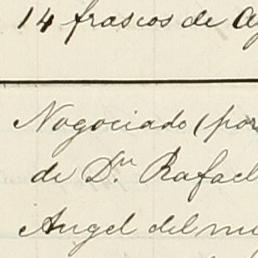 14 frascos de Ag
Nogociado (por
de Dn. Rafael
Angel del mi